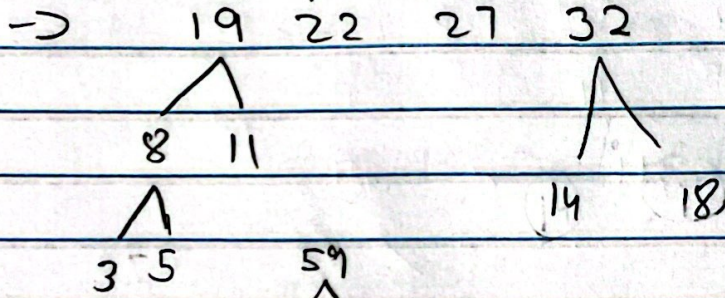 -> 19 22 27 32
8 11
14 18
3 5
59